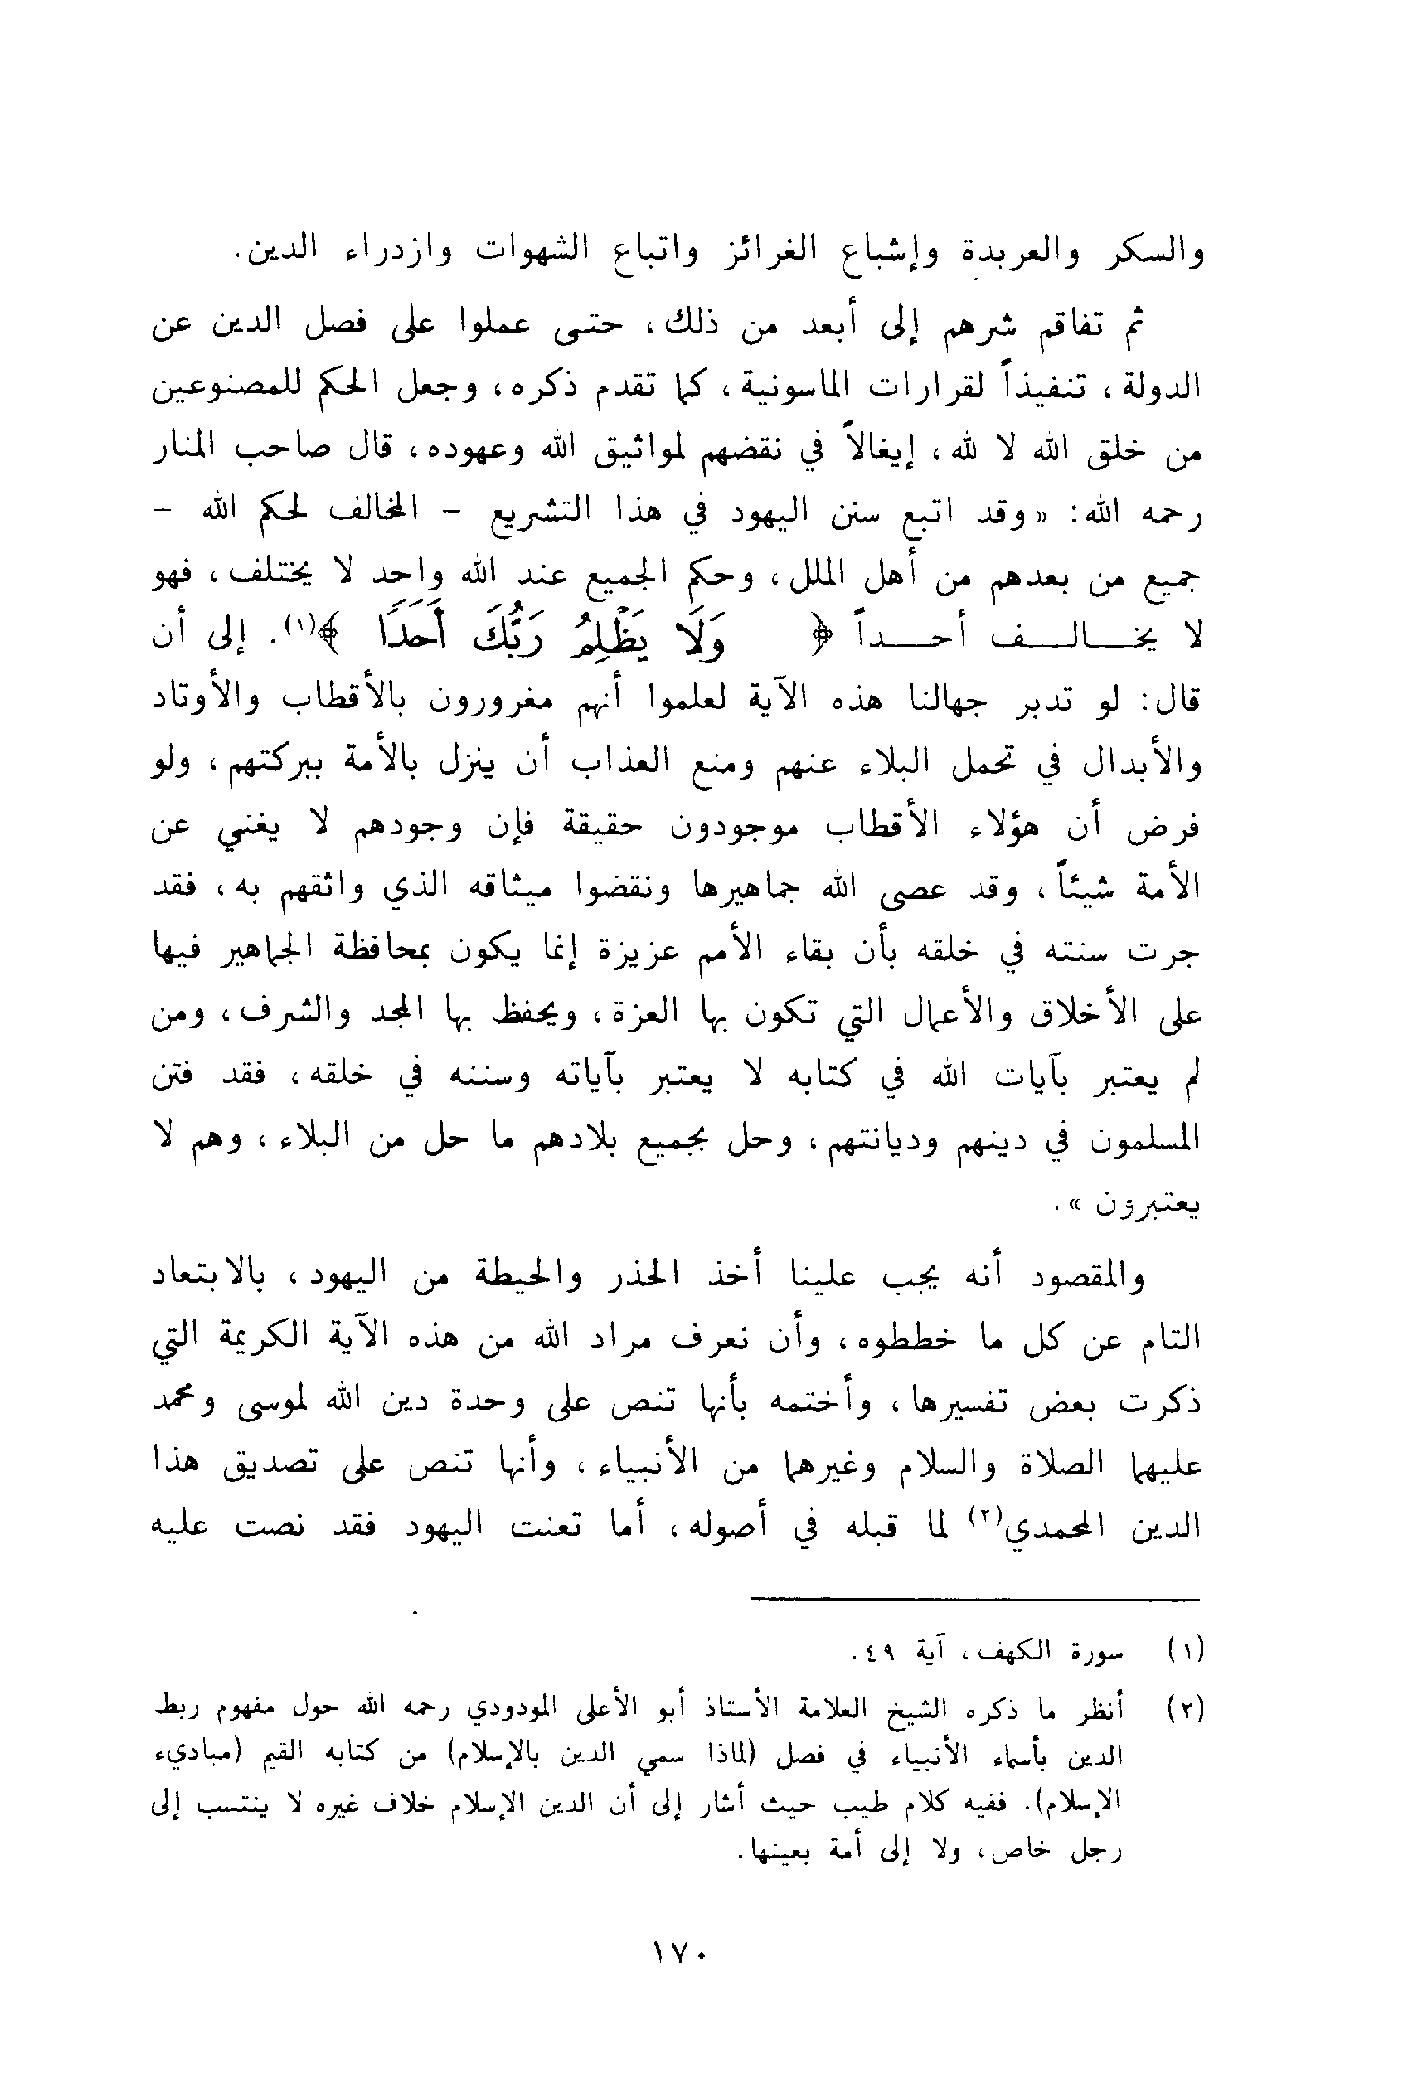 والسكر والعربدة وإشباع الغرائز واتباع الشهوات وازدراء الدين.
ثم تفاقم شرهم إلى أبعد من ذلك، حتى عملوا على فصل الدين عن
الدولة، تنفيذاً لقرارات الماسونية، كما تقدم ذكره، وجعل الحكم للمصنوعين
من خلق الله لا لله، إيغالاً في نقضهم لمواثيق الله وعهوده، قال صاحب المنار
رحمه الله: «وقد اتبع سنن اليهود في هذا التشريع - المخالف لحكم الله -
جميع من بعدهم من أهل الملل، وحكم الجميع عند الله واحد لا يختلف، فهو
لا يخـالـف أحـداً ﴿ وَلَا يَظْلِمُ رَبُّكَ أَحَدًا ﴾(١). إلى أن
قال: لو تدبر جهالنا هذه الآية لعلموا أنهم مغرورون بالأقطاب والأوتاد
والأبدال في تحمل البلاء عنهم ومنع العذاب أن ينزل بالأمة ببركتهم، ولو
فرض أن هؤلاء الأقطاب موجودون حقيقة فإن وجودهم لا يغني عن
الأمة شيئاً، وقد عصى الله جماهيرها ونقضوا ميثاقه الذي واثقهم به، فقد
جرت سنته في خلقه بأن بقاء الأمم عزيزة إنما يكون بمحافظة الجماهير فيها
على الأخلاق والأعمال التي تكون بها العزة، ويحفظ بها المجد والشرف، ومن
لم يعتبر بآيات الله في كتابه لا يعتبر بآياته وسننه في خلقه، فقد فتن
المسلمون في دينهم وديانتهم، وحل بجميع بلادهم ما حل من البلاء، وهم لا
يعتبرون».
والمقصود أنه يجب علينا أخذ الحذر والحيطة من اليهود، بالابتعاد
التام عن كل ما خططوه، وأن نعرف مراد الله من هذه الآية الكريمة التي
ذكرت بعض تفسيرها، وأختمه بأنها تنص على وحدة دين الله لموسى ومحمد
عليهما الصلاة والسلام وغيرهما من الأنبياء، وأنها تنص على تصديق هذا
الدين المحمدي(٢) لما قبله في أصوله، أما تعنت اليهود فقد نصت عليه
(١) سورة الكهف، آية ٤٩.
(٢) أنظر ما ذكره الشيخ العلامة الأستاذ أبو الأعلى المودودي رحمه الله حول مفهوم ربط
الدين بأسماء الأنبياء في فصل (لماذا سمي الدين بالإسلام) من كتابه القيم (مباديء
الإسلام). ففيه كلام طيب حيث أشار إلى أن الدين الإسلام خلاف غيره لا ينتسب إلى
رجل خاص، ولا إلى أمة بعينها.
١٧٠